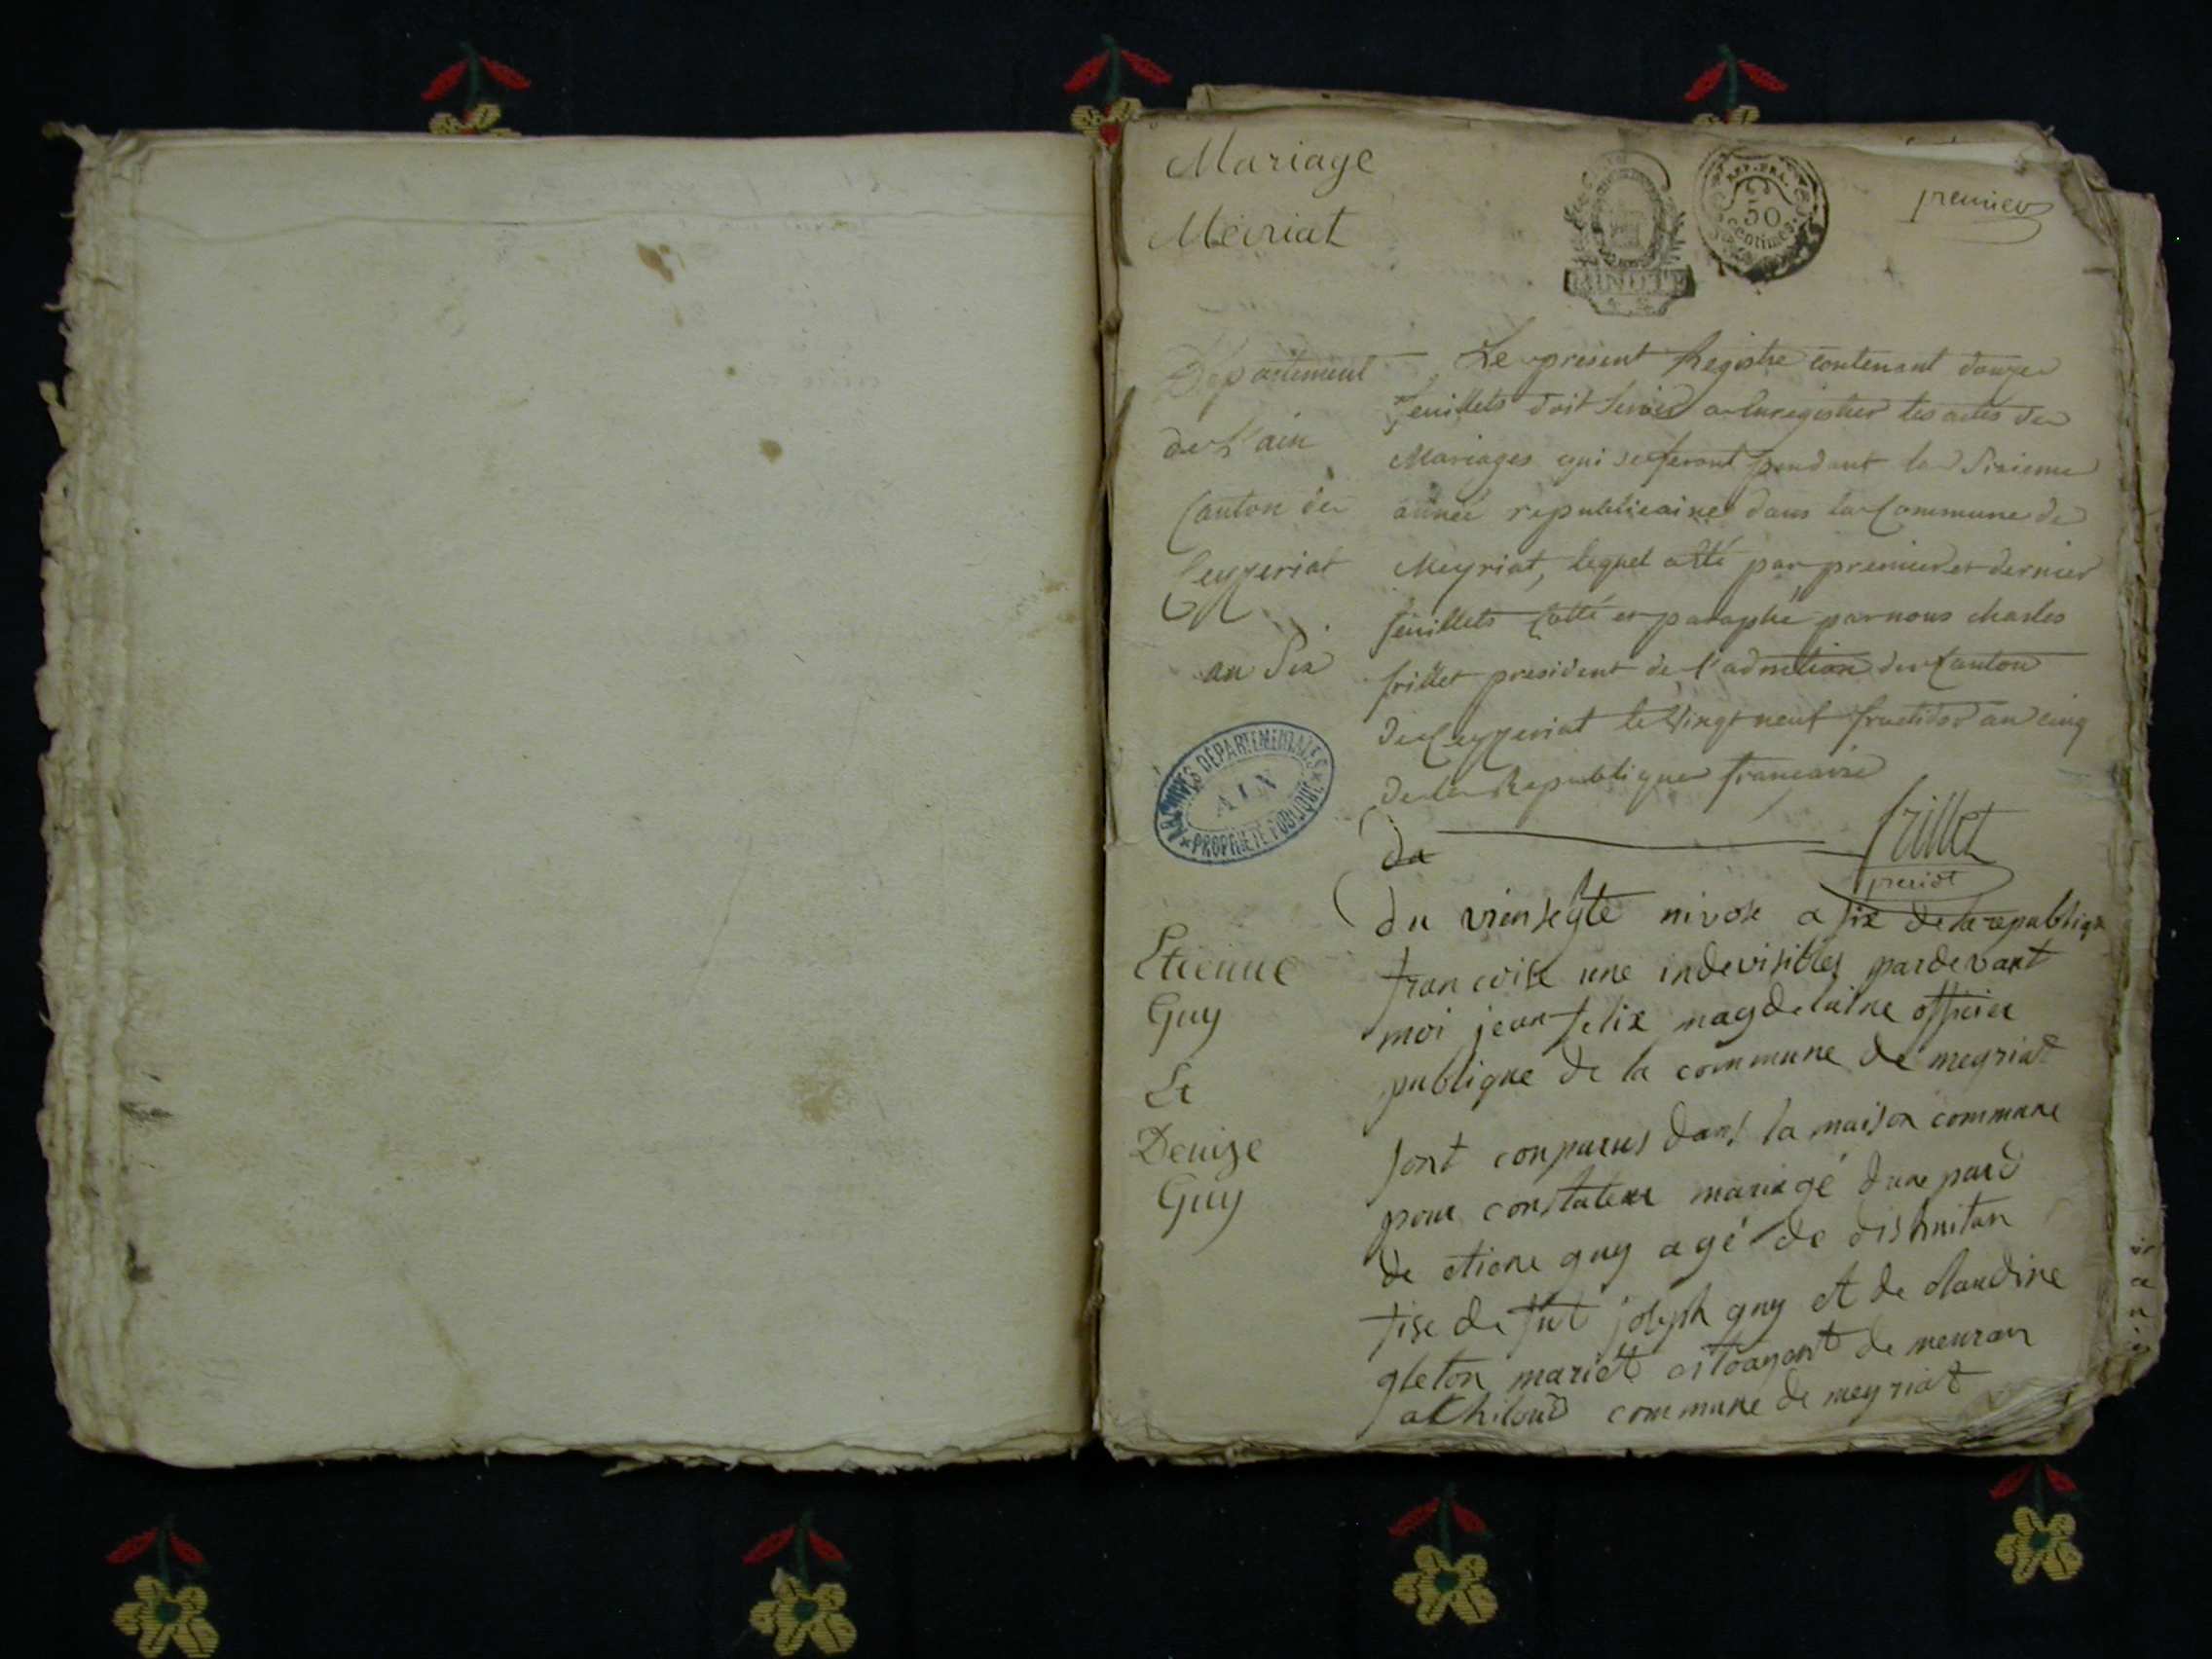 Mariage
Meiriat
premier
MINUTE
REP. FRA.
50
Centimes
Département
de L'ain
Canton de
Ceyzeriat
an Six
Le present Registre contenant douze
feuillets doit servir a Enregistrer les actes de
Mariages qui se feront pendant la Sixieme
année republicaine dans la Commune de
Meyriat, lequel a été par premier et dernier
feuillets Cotté et paraphé par nous charles
frillet president de l'admtion du Canton
de Ceyzeriat le Vingt neuf fructidor an cinq
de la Republique francaise
frillet
presidt
ARCHIVES DÉPARTEMENTALES
AIN
PROPRIÉTÉ PUBLIQUE
du
Etienne
Guy
Et
Denize
Guy
du viensegte nivose a six de la republiq
francoise une indevisibles pardevant
moi jean felix magdelaine officier
publique de la commune de meyriat
sont conparus dans la maison commune
pour constater mariagé dune pard
de etiene guy agé de dishuitan
fise de fut joseph guy et de claudine
gleton mariét sitoayent de meuran
at hiloud commune de meyriat